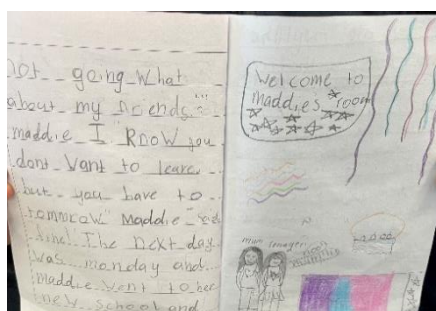 not going What
about my friends"
maddie I know you
dont Want to leave
but you have to
tommrow" Maddie
fine! The next day
was monday and
maddie went to her
new school and
Welcome to
maddies room
mum